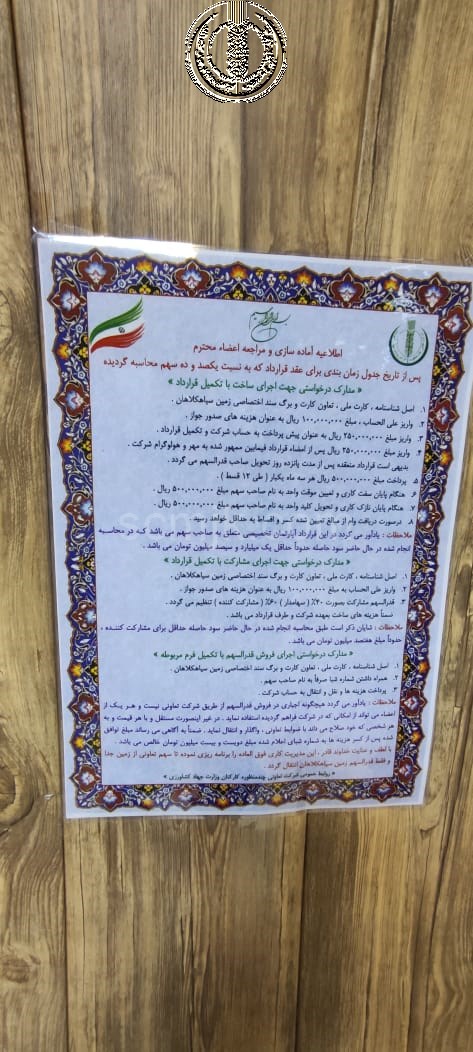 اطلاعیه آماده سازی و مراجعه اعضاء محترم
پس از تاریخ جدول زمان بندی برای عقد قرارداد که به نسبت یکصد و ده سهم محاسبه گردیده
« مدارک درخواستی جهت اجرای ساخت با تکمیل قرارداد »
۱. اصل شناسنامه ، کارت ملی ، تعاون کارت و برگ سند اختصاصی زمین سیاهکلاهان .
۲. واریز علی الحساب ، مبلغ ۱۰۰,۰۰۰,۰۰۰ ریال به عنوان هزینه های صدور جواز .
۳. واریز مبلغ ۲۵۰,۰۰۰,۰۰۰ ریال به عنوان پیش پرداخت به حساب شرکت و تکمیل قرارداد .
۴. واریز مبلغ ۲۵۰,۰۰۰,۰۰۰ ریال پس از امضاء قرارداد فیمابین ممهور شده به مهر و هولوگرام شرکت .
بدیهی است قرارداد منعقده پس از مدت پانزده روز تحویل صاحب قدرالسهم می گردد .
۵. پرداخت مبلغ ۵۰۰,۰۰۰,۰۰۰ ریال هر سه ماه یکبار ( طی ۱۲ قسط ) .
۶. هنگام پایان سفت کاری و تعیین موقت واحد به نام صاحب سهم مبلغ ۵۰۰,۰۰۰,۰۰۰ ریال .
۷. هنگام پایان نازک کاری و تحویل کلید واحد به نام صاحب سهم مبلغ ۵۰۰,۰۰۰,۰۰۰ ریال .
۸. درصورت دریافت وام از مبالغ تعیین شده کسر و اقساط به حداقل خواهد رسید .
ملاحظات : یادآور می گردد در این قرارداد آپارتمان تخصیصی متعلق به صاحب سهم می باشد کـه در محاسبـه
انجام شده در حال حاضر سود حاصله حدوداً حداقل یک میلیارد و سیصد میلیون تومان می باشد .
« مدارک درخواستی جهت اجرای مشارکت با تکمیل قرارداد »
۱. اصل شناسنامه ، کارت ملی ، تعاون کارت و برگ سند اختصاصی زمین سیاهکلاهان .
۲. واریز علی الحساب به مبلغ ۱۰۰,۰۰۰,۰۰۰ ریال به عنوان هزینه های صدور جواز .
۳. قدرالسهم مشارکت بصورت ۴۰٪ ( سهامدار ) ۶۰٪ ( مشارکت کننده ) تنظیم می گردد .
ضمناً هزینه های ساخت بعهده شرکت و طرف قرارداد می باشد .
ملاحظات : شایان ذکر است طبق محاسبه انجام شده در حال حاضر سود حاصله حداقل برای مشارکت کننـده ،
حدوداً مبلغ هفتصد میلیون تومان می باشد .
« مدارک درخواستی اجرای فروش قدرالسهم با تکمیل فرم مربوطه »
۱. اصل شناسنامه ، کارت ملی ، تعاون کارت و برگ سند اختصاصی زمین سیاهکلاهان .
۲. همراه داشتن شماره شبا صرفاً به نام صاحب سهم .
۳. پرداخت هزینه ها و نقل و انتقال به حساب شرکت .
ملاحظات : یادآور می گردد هیچگونه اجباری در فروش قدرالسهم از طریق شرکت تعاونی نیست و هـر یـک از
اعضاء می تواند از امکانی که در شرکت فراهم گردیده استفاده نماید . در غیر اینصورت مستقل و با هر قیمت و به
هر شخصی که خود صلاح می داند با ضوابط تعاونی ، واگذار و انتقال نماید . ضمناً به آگاهی می رساند مبلغ توافق
شده پس از کسر هزینه ها به شماره شبای اعلام شده مبلغ دویست و بیست میلیون تومان خالص می باشد .
با لطف و عنایت خداوند قادر ، این مدیریت کاری فوق العاده را برنامه ریزی نموده تا سهم تعاونی از زمین جدا
و فقط قدرالسهم زمین سیاهکلاهان انتقال گردد .
« روابط عمومی شرکت تعاونی چندمنظوره کارکنان وزارت جهاد کشاورزی »